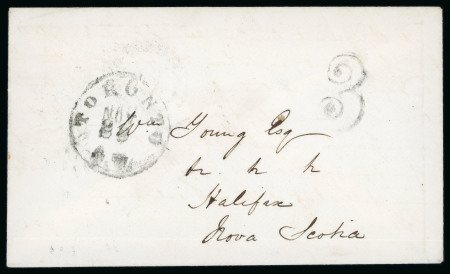 TORONTO
NOV
C.W.
3
Wm Young Esq
&c. &c. &c.
Halifax
Nova Scotia